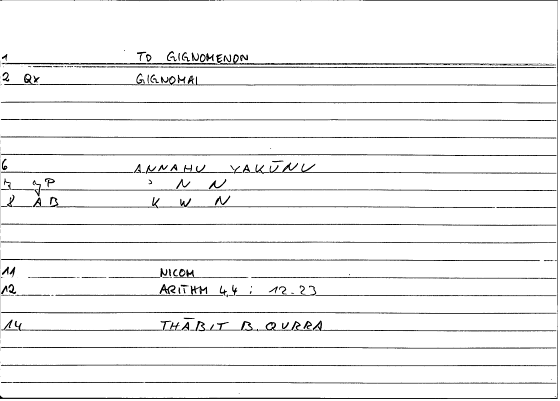 1 TO GIGNOMENON
2 Qx GIGNOMAI
6 ANNAHU YAKŪNU
7 gP ʾ N N
8 AB K W N
11 NICOM
12 ARITHM 44 : 12-23
14 THĀBIT B. QURRA